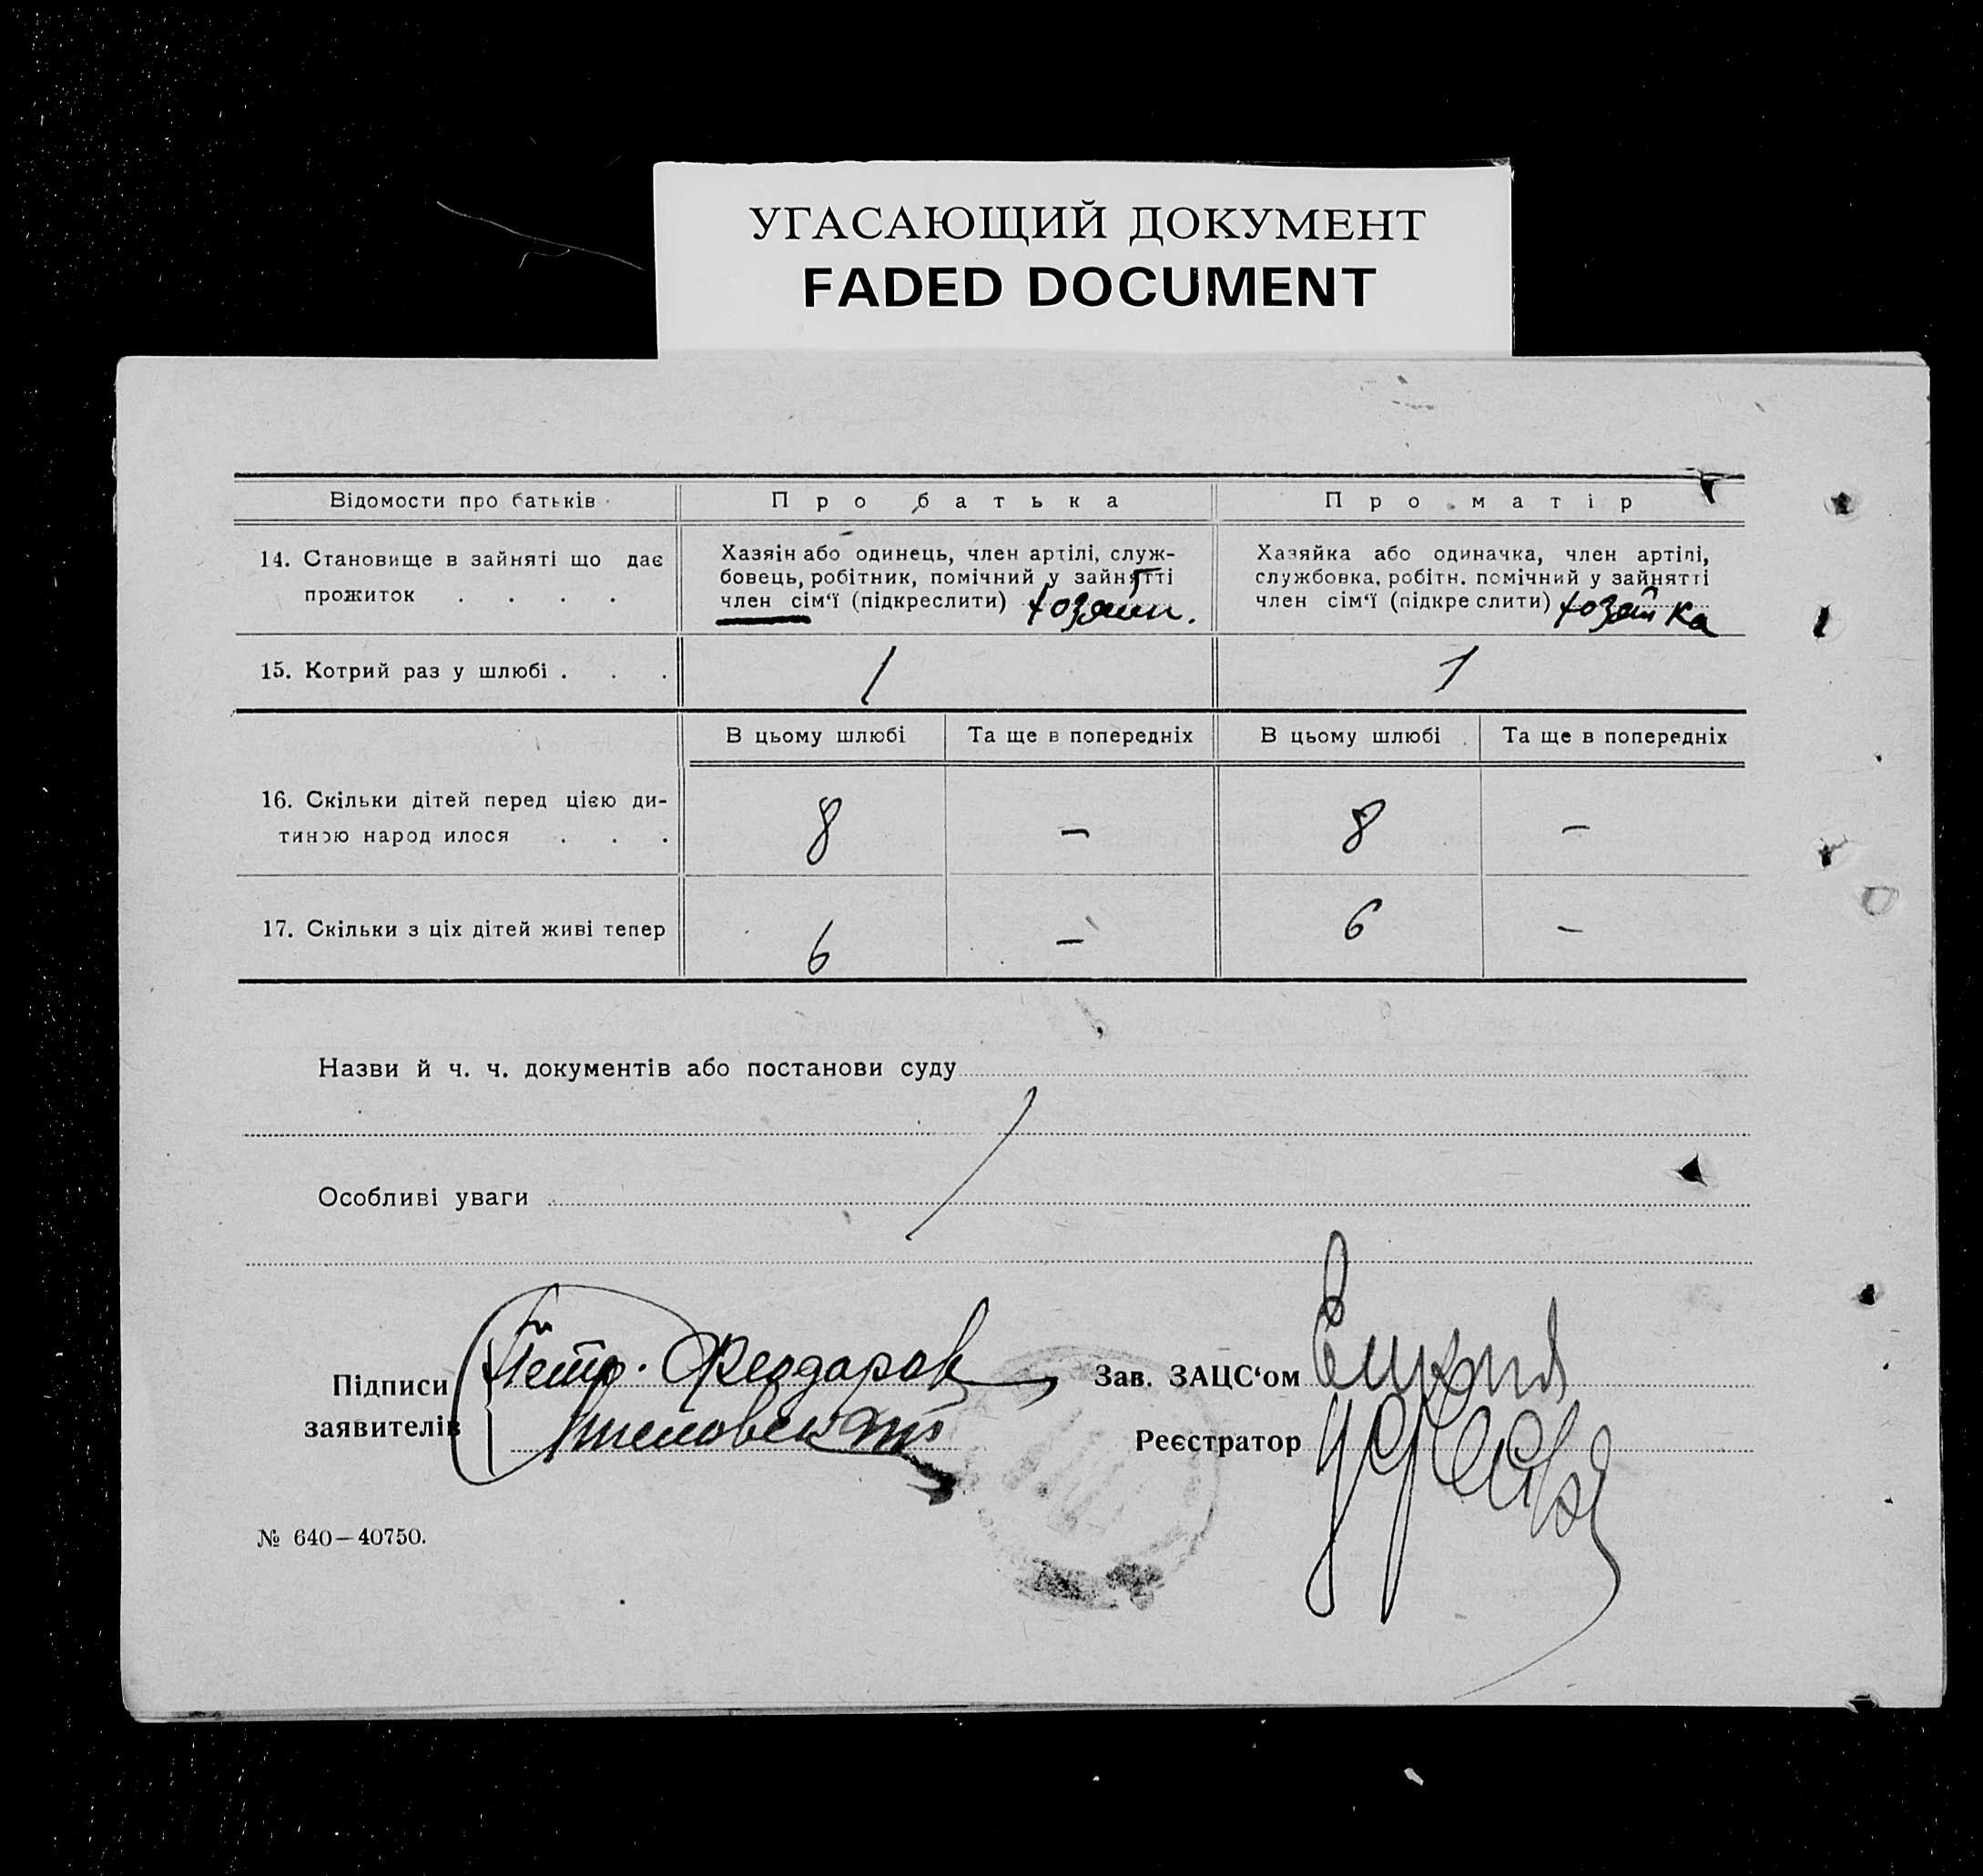 УГАСАЮЩИЙ ДОКУМЕНТ
FADED DOCUMENT
Відомости про батьків
Про батька
Про матір
14. Становище в зайняті що дає
прожиток . . . .
Хазяін або одинець, член артілі, служ-
бовець, робітник, помічний у зайнятті
член сім‘ї (підкреслити) хозяин.
Хазяйка або одиначка, член артілі,
службовка, робітн. помічний у зайнятті
член сім‘ї (підкреслити) хозяйка
15. Котрий раз у шлюбі . . .
1
1
В цьому шлюбі
Та ще в попередніх
В цьому шлюбі
Та ще в попередніх
16. Скільки дітей перед цією ди-
тиною народилося . . .
8
–
8
–
17. Скільки з ціх дітей живі тепер
6
–
6
–
Назви й ч. ч. документів або постанови суду
Особливі уваги
Підписи
заявителів
Петр. Феодаров
Зав. ЗАЦС‘ом
Реєстратор
№ 640—40750.